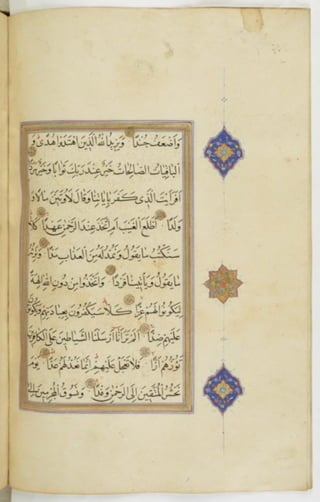 وَأَضْعَفُ جُنْدًا وَيَزِيدُ اللَّهُ الَّذِينَ اهْتَدَوْا هُدًى وَ
الْبَاقِيَاتُ الصَّالِحَاتُ خَيْرٌ عِنْدَ رَبِّكَ ثَوَابًا وَخَيْرٌ مَرَدًّا
أَفَرَأَيْتَ الَّذِي كَفَرَ بِآيَاتِنَا وَقَالَ لَأُوتَيَنَّ مَالًا
وَوَلَدًا أَطَّلَعَ الْغَيْبَ أَمِ اتَّخَذَ عِنْدَ الرَّحْمٰنِ عَهْدًا كَلَّا
سَنَكْتُبُ مَا يَقُولُ وَنَمُدُّ لَهُ مِنَ الْعَذَابِ مَدًّا وَنَرِثُهُ
مَا يَقُولُ وَيَأْتِينَا فَرْدًا وَاتَّخَذُوا مِنْ دُونِ اللَّهِ آلِهَةً
لِيَكُونُوا لَهُمْ عِزًّا كَلَّا سَيَكْفُرُونَ بِعِبَادَتِهِمْ وَيَكُونُونَ
عَلَيْهِمْ ضِدًّا أَلَمْ تَرَ أَنَّا أَرْسَلْنَا الشَّيَاطِينَ عَلَى الْكَافِرِينَ
تَؤُزُّهُمْ أَزًّا فَلَا تَعْجَلْ عَلَيْهِمْ إِنَّمَا نَعُدُّ لَهُمْ عَدًّا يَوْمَ
نَحْشُرُ الْمُتَّقِينَ إِلَى الرَّحْمٰنِ وَفْدًا وَنَسُوقُ الْمُجْرِمِينَ إِلَى